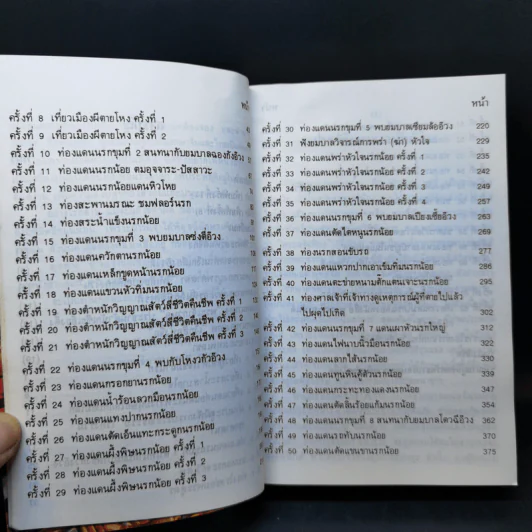 หน้า
ครั้งที่ 8 เที่ยวเมืองผีตายโหง ครั้งที่ 1
ครั้งที่ 9 เที่ยวเมืองผีตายโหง ครั้งที่ 2
ครั้งที่ 10 ท่องแดนนรกขุมที่ 2 สนทนากับยมบาลฉองกังอ๊วง
ครั้งที่ 11 ท่องแดนนรกน้อย ตมอุจจาระ-ปัสสาวะ
ครั้งที่ 12 ท่องแดนนรกน้อยแดนหิวโหย
ครั้งที่ 13 ท่องสะพานมรณะ ชมฟลอร์นรก
ครั้งที่ 14 ท่องสระน้ำแข็งนรกน้อย
ครั้งที่ 15 ท่องแดนนรกขุมที่ 3 พบยมบาลซ่งตี่อ๊วง
ครั้งที่ 16 ท่องแดนควักตานรกน้อย
ครั้งที่ 17 ท่องแดนเหล็กขูดหน้านรกน้อย
ครั้งที่ 18 ท่องแดนแขวนหัวทิ่มนรกน้อย
ครั้งที่ 19 ท่องตำหนักวิญญาณสัตว์สี่ชีวิตคืนชีพ ครั้งที่ 1
ครั้งที่ 20 ท่องตำหนักวิญญาณสัตว์สี่ชีวิตคืนชีพ ครั้งที่ 2
ครั้งที่ 21 ท่องตำหนักวิญญาณสัตว์สี่ชีวิตคืนชีพ ครั้งที่ 3
ครั้งที่ 22 ท่องแดนนรกขุมที่ 4 พบกับโหงวกัวอ๊วง
ครั้งที่ 23 ท่องแดนกรอกยานรกน้อย
ครั้งที่ 24 ท่องแดนน้ำร้อนลวกมือนรกน้อย
ครั้งที่ 25 ท่องแดนแทงปากนรกน้อย
ครั้งที่ 26 ท่องแดนตัดเอ็นแทะกระดูกนรกน้อย
ครั้งที่ 27 ท่องแดนผึ้งพิษนรกน้อย ครั้งที่ 1
ครั้งที่ 28 ท่องแดนผึ้งพิษนรกน้อย ครั้งที่ 2
ครั้งที่ 29 ท่องแดนผึ้งพิษนรกน้อย ครั้งที่ 3
หน้า
ครั้งที่ 30 ท่องแดนนรกขุมที่ 5 พบยมบาลเซียมล้ออ๊วง 220
ครั้งที่ 31 ฟังยมบาลวิจารณ์การพร่า (ฆ่า) หัวใจ 229
ครั้งที่ 32 ท่องแดนพร่าหัวใจนรกน้อย ครั้งที่ 1 235
ครั้งที่ 33 ท่องแดนพร่าหัวใจนรกน้อย ครั้งที่ 2 242
ครั้งที่ 34 ท่องแดนพร่าหัวใจนรกน้อย ครั้งที่ 3 249
ครั้งที่ 35 ท่องแดนพร่าหัวใจนรกน้อย ครั้งที่ 4 257
ครั้งที่ 36 ท่องแดนนรกขุมที่ 6 พบยมบาลเปียงเซี้ยอ๊วง 263
ครั้งที่ 37 ท่องแดนตัดไตหนูนรกน้อย 269
ครั้งที่ 38 ท่องนรกสอนขับรถ 277
ครั้งที่ 39 ท่องแดนแหวกปากเอาเข็มทิ่มนรกน้อย 286
ครั้งที่ 40 ท่องแดนตะข่ายหนามตั๊กแตนเจาะนรกน้อย 295
ครั้งที่ 41 ท่องศาลเจ้าที่เจ้าทางดูเหตุการณ์ผู้ที่ตายไปแล้ว
ไปผุดไปเกิด 302
ครั้งที่ 42 ท่องแดนนรกขุมที่ 7 แดนเผาหัวนรกใหญ่ 312
ครั้งที่ 43 ท่องแดนไฟนาบนิ้วมือนรกน้อย 322
ครั้งที่ 44 ท่องแดนลากไส้นรกน้อย 330
ครั้งที่ 45 ท่องแดนทูนหินคู้ตัวนรกน้อย 339
ครั้งที่ 46 ท่องแดนกระทะทองแดงนรกน้อย 347
ครั้งที่ 47 ท่องแดนตัดลิ้นร้อยแก้มนรกน้อย 354
ครั้งที่ 48 ท่องแดนนรกขุมที่ 8 สนทนากับยมบาลโตวฉีอ๊วง 362
ครั้งที่ 49 ท่องแดนรถทับนรกน้อย 370
ครั้งที่ 50 ท่องแดนตัดแขนขานรกน้อย 375